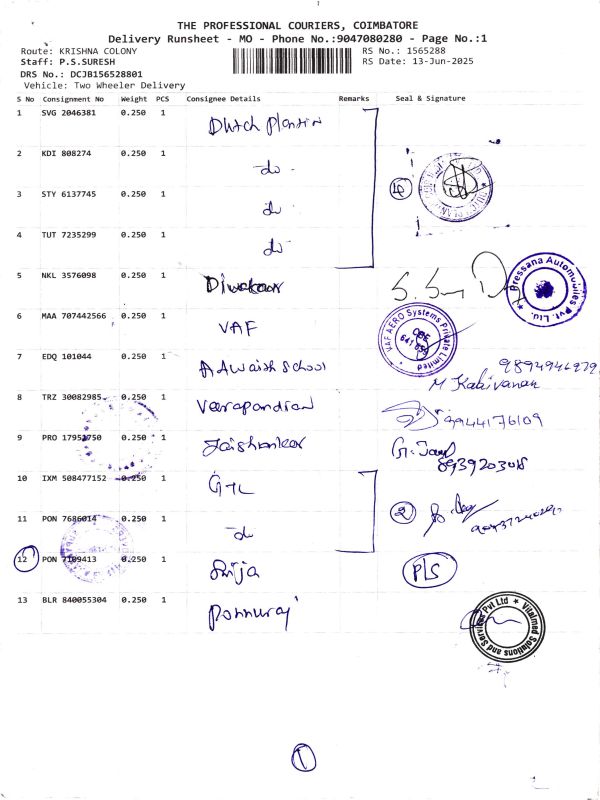 THE PROFESSIONAL COURIERS, COIMBATORE
Delivery Runsheet - MO - Phone No.:9047080280 - Page No.:1
Route: KRISHNA COLONY RS No.: 1565288
Staff: P.S.SURESH RS Date: 13-Jun-2025
DRS No.: DCJB156528801
Vehicle: Two Wheeler Delivery
S No Consignment No Weight PCS Consignee Details Remarks Seal & Signature
1 SVG 2046381 0.250 1 Dutch plantin
2 KDI 808274 0.250 1 do
3 STY 6137745 0.250 1 do
4 TUT 7235299 0.250 1 do
5 NKL 3576098 0.250 1 Diwakaar
Bressana Automobiles Pvt. Ltd.
6 MAA 707442566 0.250 1 VAF
VAF AERO Systems Private Limited
CBE
7 EDQ 101044 0.250 1 School
M Kalaivanan
8 TRZ 30082985 0.250 1 Veerapandian 9944176109
9 PRO 17952750 0.250 1 Jaishankar
8939203048
10 IXM 508477152 0.250 1 GTL
11 PON 7686014 0.250 1 do 2
12 PON 7109413 0.250 1 Srija P/S
13 BLR 840055304 0.250 1 Ponnuraj
Vitalmed Solutions and Services Pvt Ltd
1